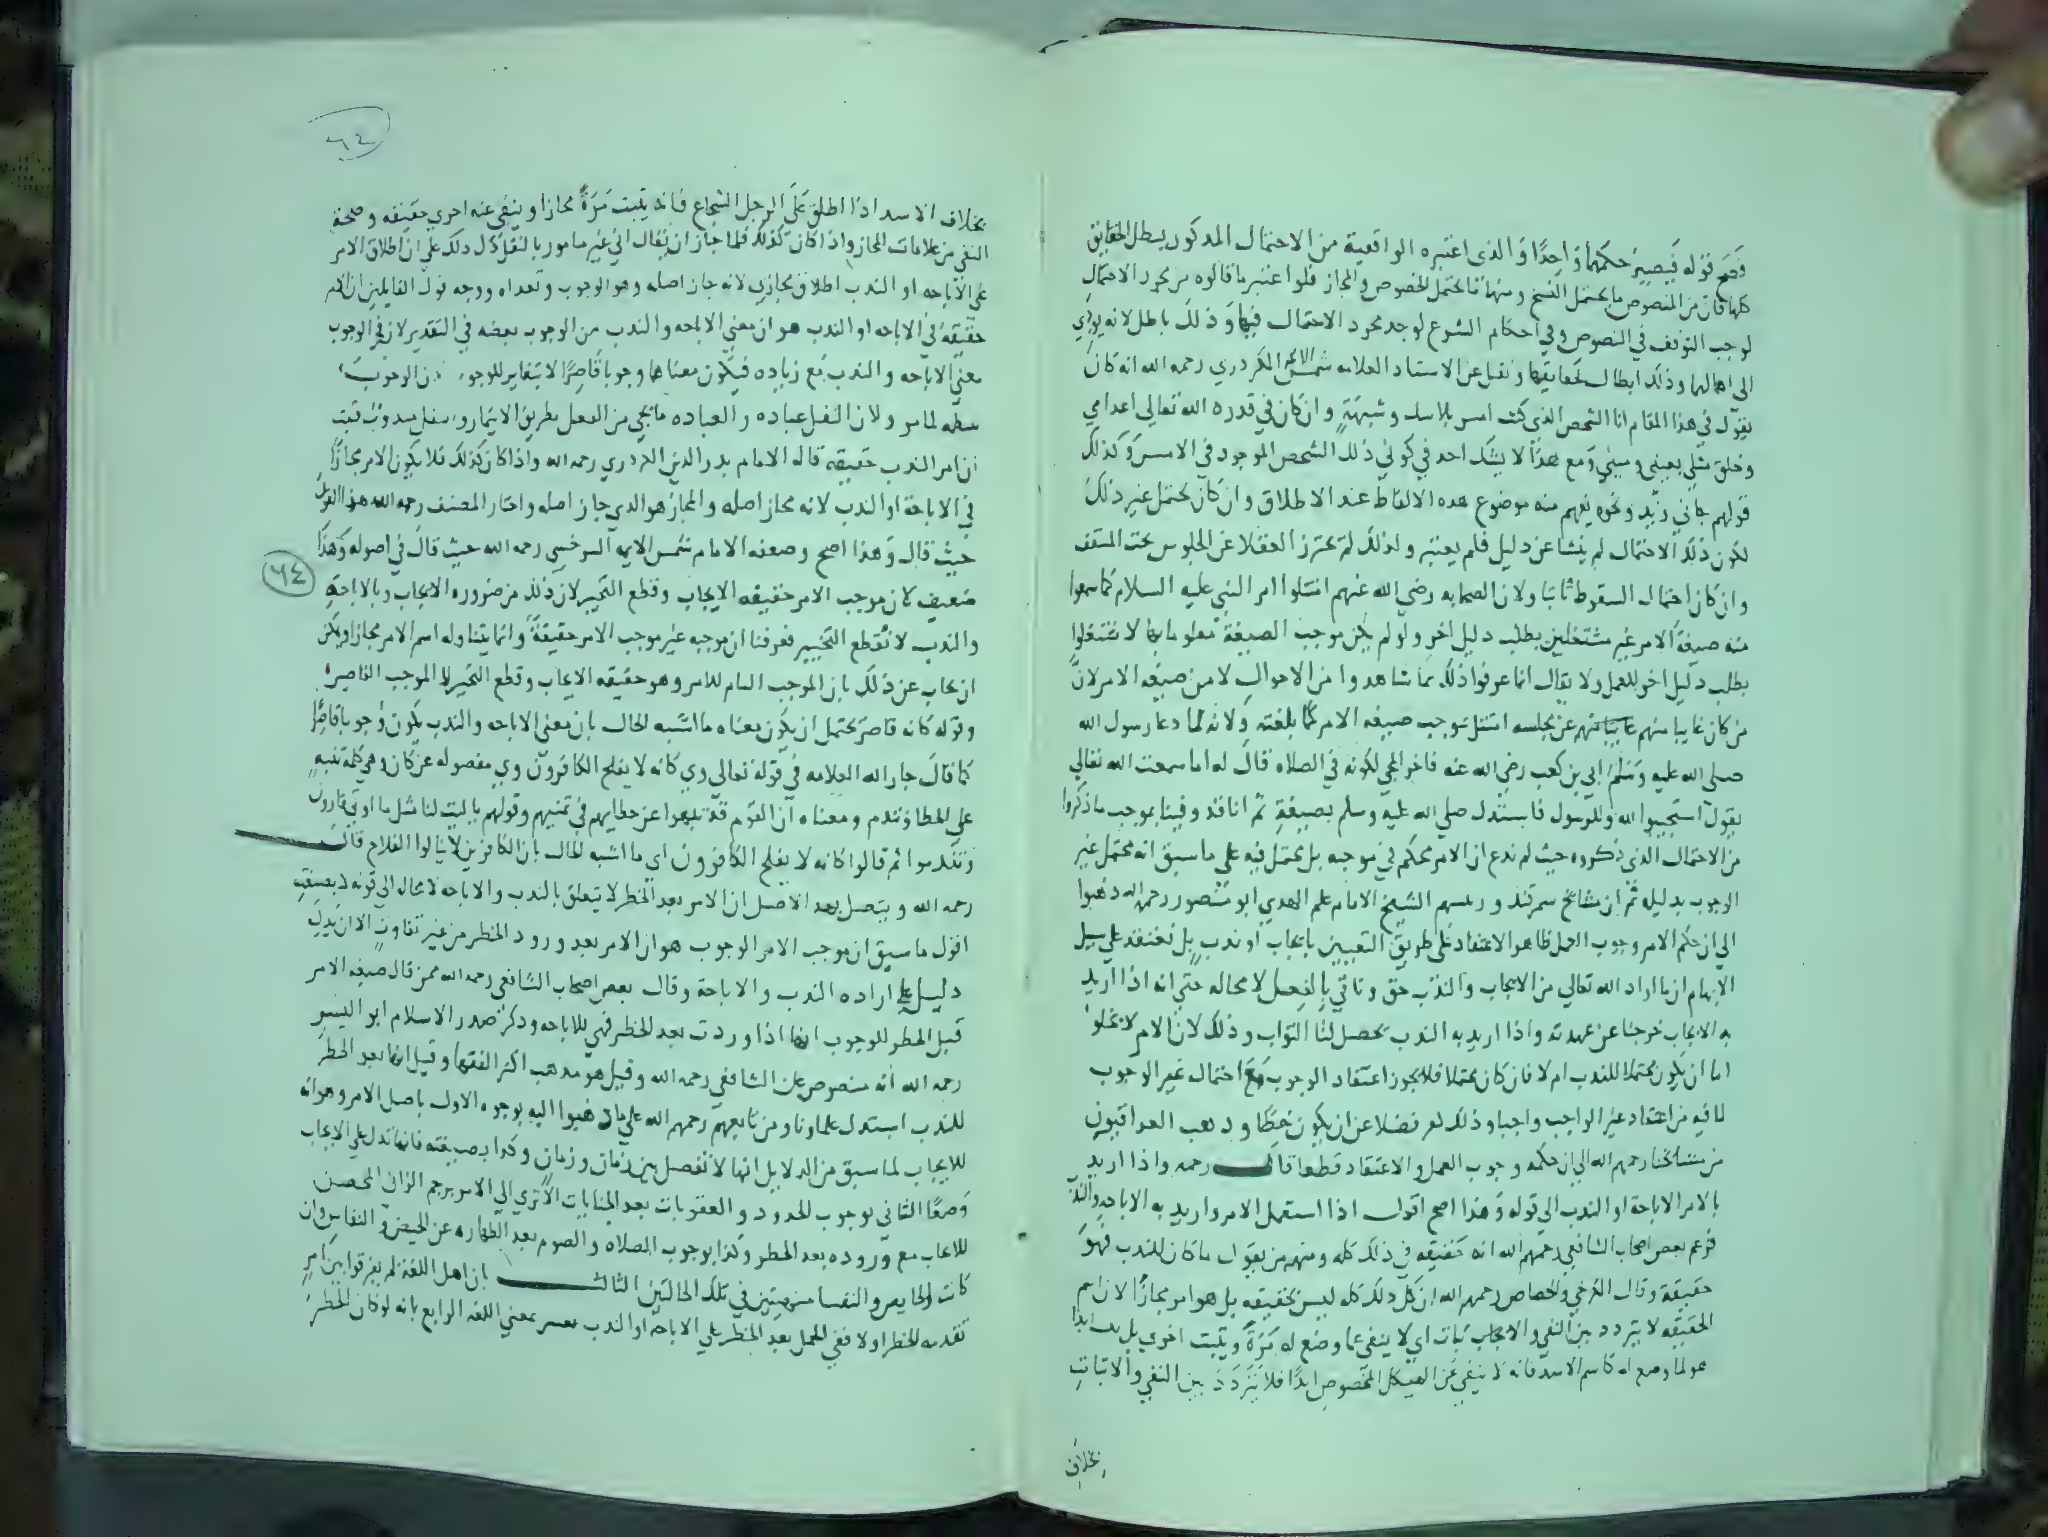 وصح قوله فيصير حكمها واحدا والذى اعتبره الواقعية من الاحتمال المذكور يبطل الحقايق
كلها فان من النصوص ما يحتمل النسخ ومنها ما يحتمل الخصوص والمجاز فلو اعتبر ما قالوه من مجرد الاحتمال
لوجب التوقف في النصوص وفي احكام الشرع لوجد مجرد الاحتمال فيها وذلك باطل لانه يودي
الى اهمالها وذلك ابطال لحقايقها ونقل عن الاستاد العلامه شمس الايمه الكردري رحمه الله انه كان
يقول في هذا المقام انا الشخص الذى كنت امس بلا شك وشبهة وان كان في قدره الله تعالي اعدامي
وخلق مثلي بعيني ومع هذا لا يشك احد في كوني ذلك الشخص الموجود في الامس وكذلك
قولهم جاني زيد ونحوه يفهم منه موضوع هده الالفاظ عند الاطلاق وان كان يحتمل غير ذلك
لكون ذلك الاحتمال لم ينشا عن دليل فلم يعتبر ولذلك لم يحترز العقلا عن الجلوس تحت السقف
وان كان احتمال السقوط ثابتا ولان الصحابه رضي الله عنهم امتثلوا امر النبي عليه السلام كما سمعوا
منه صيغة الامر غير مشتغلين بطلب دليل اخر ولو لم يكن موجب الصيغة معلوما بها لاشتغلوا
بطلب دليل اخر للعمل ولا يقال انما عرفوا ذلك بما شاهدوا من الاحوال لا من صيغه الامر لان
من كان غايبا منهم عن مجلسه امتثل موجب صيغه الامر كما بلغته ولانه لما دعا رسول الله
صلى الله عليه وسلم ابي بن كعب رضي الله عنه فاخر المجي لكونه في الصلاه قال له اما سمعت الله تعالي
يقول استجيبوا لله وللرسول فاستدل صلي الله عليه وسلم بصيغة ثم انا قد وفينا بموجب ما ذكروا
من الاحتمال الذي ذكروه حيث لم ندع ان الامر محكم في موجبه بل يحتمل فيه على ما سبق انه محتمل غير
الوجوب بدليله ثم ان مشايخ سمرقند وريسهم الشيخ الامام علم الهدي ابو منصور رحمه الله ذهبوا
الى ان حكم الامر وجوب العمل ظاهرا لا اعتقاد على طريق التعيين بايجاب او ندب بل نعتقد على سبيل
الابهام ان ما اراد الله تعالي من الايجاب والندب حق وناتي بالفعل لا محاله حتي انه اذا اريد
به الايجاب خرجنا عن عهدته واذا اريد به الندب يحصل لنا الثواب وذلك لان الامر لا يخلوا
اما ان يكون محتملا للندب ام لا فان كان محتملا فلا يجوز اعتقاد الوجوب مع احتمال غير الوجوب
لما فيه من اعتقاد غير الواجب واجبا وذلك كفر فضلا عن ان يكون خطا وذهب العراقيون
من مشايخنا رحمهم الله الى ان حكمه وجوب العمل والاعتقاد قطعا قال رحمه واذا اريد
بالامر الاباحة او الندب الى قوله وهذا اصح اقول اذا استعمل الامر واريد به الاباحه والندب
فزعم بعض اصحاب الشافعي رحمهم الله انه حقيقه في ذلك كله ومنهم من يقول ما كان للندب فهو
حقيقة وقال الكرخي والجصاص رحمهم الله ان كل ذلك كله ليس بحقيقه بل هو امر مجازا لان اسم
الحقيقه لا يتردد بين النفي والايجاب ثبات اي لا ينفي عما وضع له مرة ويثبت اخري بل ابدا
هو لما وضع له كاسم الاسد فانه لا ينفي عن الهيكل المخصوص ابدا فلا يتردد بين النفي والاثبات
بخلاف
٦٤
بخلاف الاسد اذا اطلق على الرجل الشجاع فانه يثبت مرة مجازا وينفي عنه اخري حقيقه وصحة
النفي من علامات المجاز واذا كان كذلك فلما جاز ان يقال اني غير مامور بالنفل دل ذلك علي ان اطلاق الامر
على الاباحه او الندب اطلاق مجازي لانه جاز اصله وهو الوجوب وتعداه ووجه قول القايلين ان الامر
حقيقه في الاباحه او الندب هو ان معني الاباحه والندب من الوجوب بعضه في التقدير لان في الوجوب
معني الاباحه والندب مع زياده فيكون معناها وجوبا قاصرا لا تغاير للوجوب
ولان النفل عباده والعباده ما يجي من العمل بطريق الايتمار فثبت
ان امر الندب حقيقه قاله الامام بدر الدين الكردري رحمه الله واذا كان كذلك فلا يكون الامر مجازا
في الاباحة او الندب لانه مجاز اصله والمجاز هو الذي جاز اصله واختار المصنف رحمه الله هذا القول
حيث قال وهذا اصح وضعفه الامام شمس الايمه السرخسي رحمه الله حيث قال في اصوله وهذا
٦٤
ضعيف لان موجب الامر حقيقه الايجاب وقطع التخيير لان ذلك من ضروره الايجاب وبالاباحة
والندب لا ينقطع التخيير فعرفنا ان موجبه غير موجب الامر حقيقة وانما يتناوله اسم الامر مجازا ويمكن
ان يجاب عن ذلك بان الموجب التام للامر وهو حقيقه الايجاب وقطع التخيير لا الموجب القاصر
وقوله كانه قاصر يحتمل ان يكون معناه ما اشبه الحال بان معني الاباحه والندب يكون وجوبا قاصرا
كما قال جار الله العلامه في قوله تعالى وي كانه لا يفلح الكافرون وي مفصوله عن كان وهي كلمة تنبه
على الخطا وتندم ومعناه ان القوم قد تنبهوا عن خطايهم في تمنيهم وقولهم يا ليت لنا مثل ما اوتي قارون
وتندموا ثم قالوا كانه لا يفلح الكافرون اي ما اشبه الحال بان الكافرين لا ينالوا الفلاح قال
رحمه الله ويتصل بهذا الاصل ان الامر بعد الحظر لا يتعلق بالندب والاباحه لا محاله الى قوله لا بصيغته
اقول ما سبق ان موجب الامر الوجوب هو ان الامر بعد ورود الحظر من غير تفاوت الا ان يدل
دليل على اراده الندب والاباحة وقال بعض اصحاب الشافعي رحمه الله ممن قال صيغه الامر
قبل الحظر للوجوب انها اذا وردت بعد الحظر فهي للاباحه وذكر صدر الاسلام ابو اليسر
رحمه الله انه منصوص عن الشافعي رحمه الله وقيل هو مذهب اكثر الفقها وقيل انها بعد الحظر
للندب استدل علماونا ومن تابعهم رحمهم الله علي ما ذهبوا اليه بوجوه الاول باصل الامر وهو انه
للايجاب لما سبق من الدلايل انها لا تفصل بين زمان وزمان وكذا بصيغته فانها تدل على الايجاب
وضعا الثاني بوجوب الحدود والعقوبات بعد الجنايات الا تري الى الامر برجم الزاني المحصن
للايجاب مع وروده بعد الحظر وكذا بوجوب الصلاه والصوم بعد الطهاره عن الحيض والنفاس وان
كانت الحايض والنفسا منهيتين في تلك الحالتين الثالث بان اهل اللغة لم يفرقوا بين امر
تقدمه الحظر اولا ففي الحمل بعد الحظر على الاباحة او الندب تغيير معني اللغه الرابع بانه لو كان الحظر